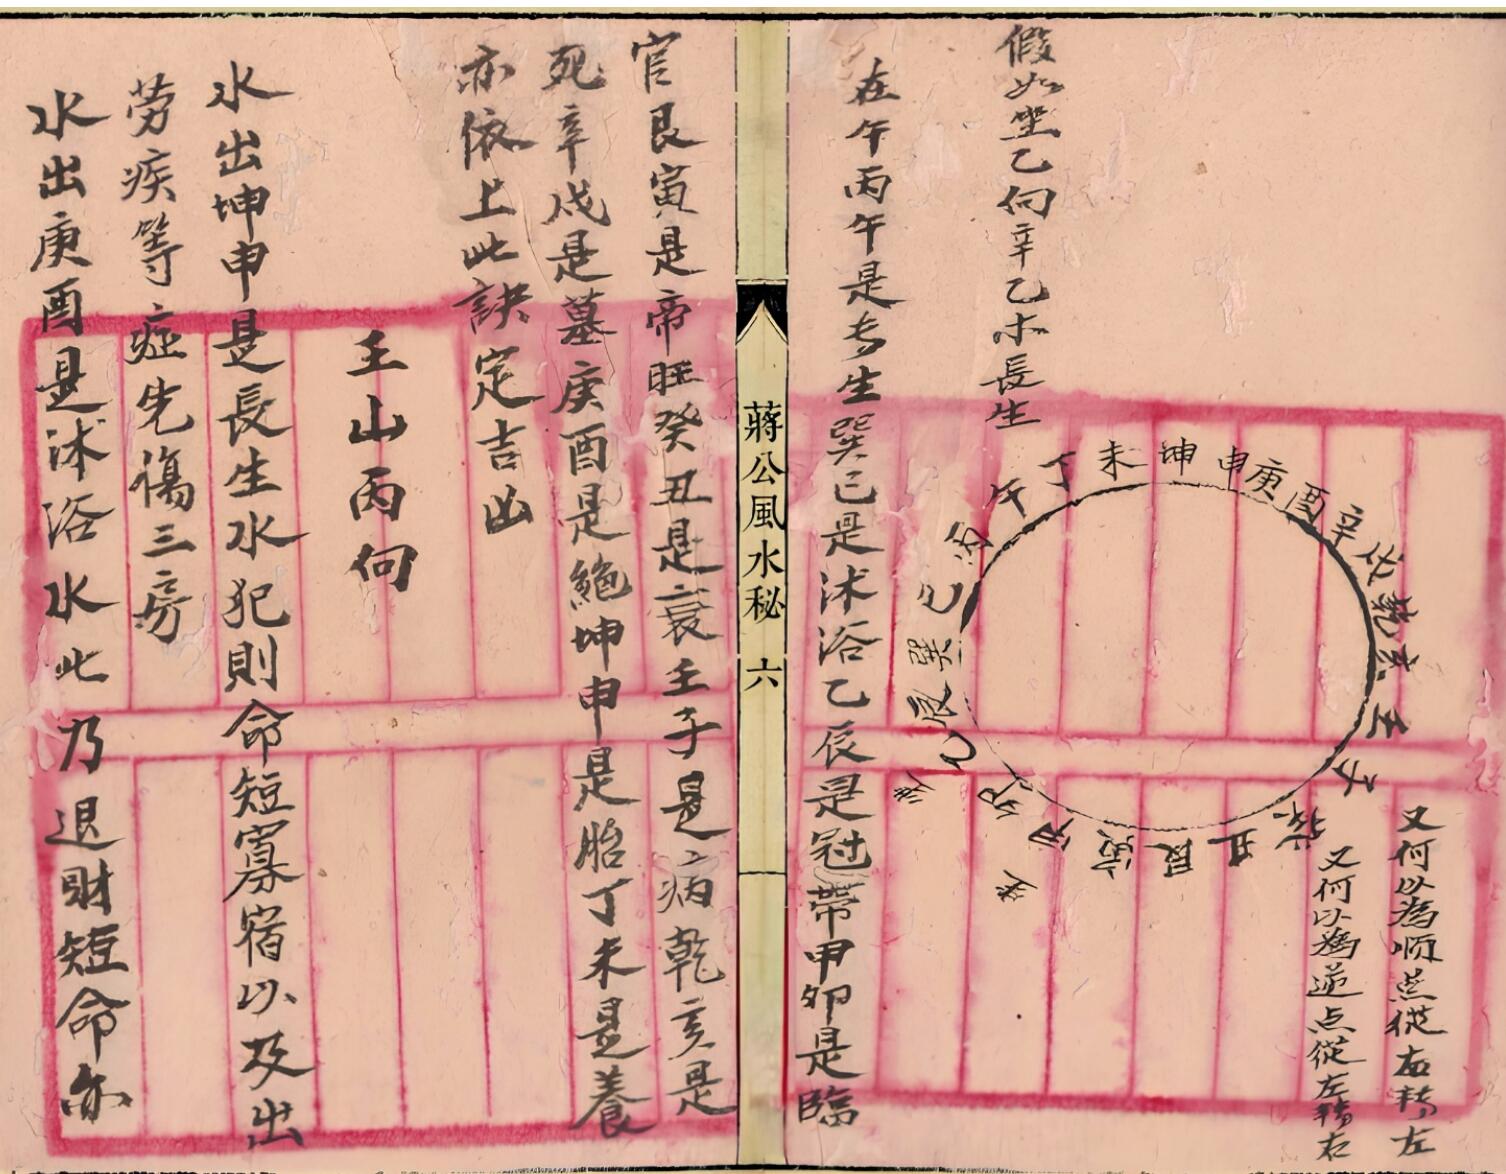 又何以為順点從右轉左
又何以為逆点從左轉右
午丁未坤申庚酉辛戌乾亥壬子癸丑艮寅甲卯乙辰巽巳丙
假如坐乙向辛乙木長生
在午丙午是長生巽巳是沐浴乙辰是冠帶甲卯是臨
蔣公風水秘 六
官艮寅是帝旺癸丑是衰壬子是病乾亥是
死辛戌是墓庚酉是絕坤申是胎丁未是養
亦依上此訣定吉凶
壬山丙向
水出坤申是長生水犯則命短寡宿以及出
劳疾等症先傷三房
水出庚酉是沐浴水此乃退財短命亦